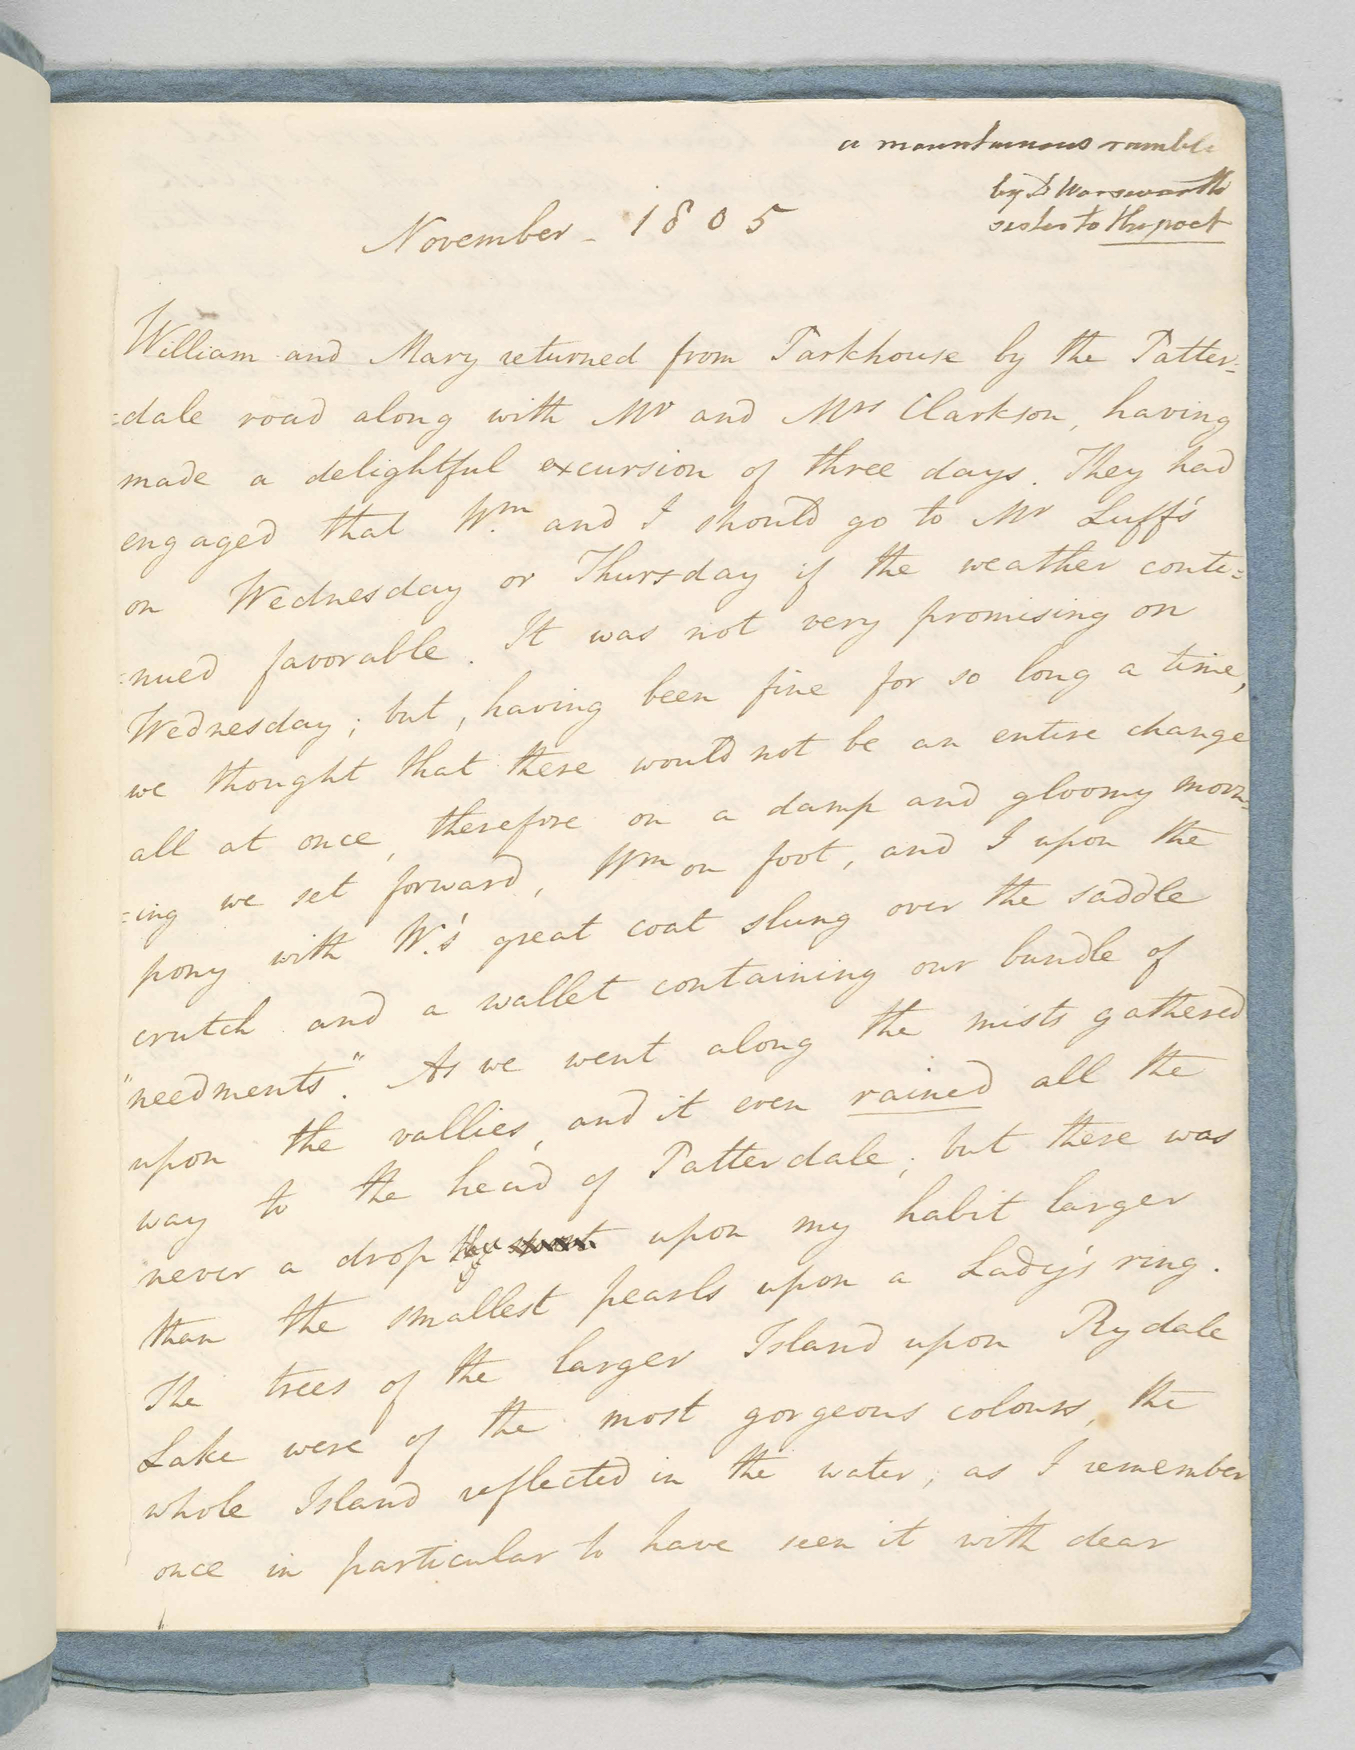 a mountainous ramble
by D Worsworth
sister to the poet
November - 1805
William and Mary returned from Parkhouse by the Patter=
=dale road along with Mr and Mrs Clarkson, having
made a delightful excursion of three days. They had
engaged that Wm. and I should go to Mr Luff's
on Wednesday or Thursday if the weather conti=
=nued favorable. It was not very promising on
Wednesday; but, having been fine for so long a time,
we thought that there would not be an entire change
all at once, therefore on a damp and gloomy morn=
=ing we set forward, Wm on foot, and I upon the
pony with W.'s great coat slung over the saddle
crutch and a wallet containing our bundle of
"needments". As we went along the mists gathered
upon the vallies, and it even rained all the
way to the head of Patterdale; but there was
never a drop upon my habit larger
than the smallest pearls upon a Lady's ring.
The trees of the larger Island upon Rydale
Lake were of the most gorgeous colours, the
whole Island reflected in the water, as I remember
once in particular to have seen it with dear